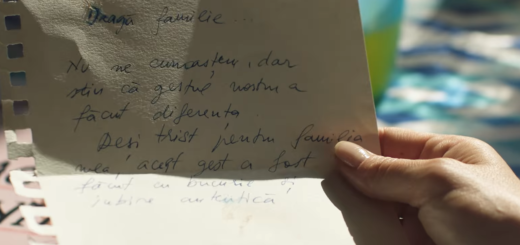 Dragă familie...
Nu ne cunoașteți, dar
știu că gestul nostru a
făcut diferența.
Deși trist pentru familia
mea, acest gest a fost
făcut cu bucurie și
iubire autentică,